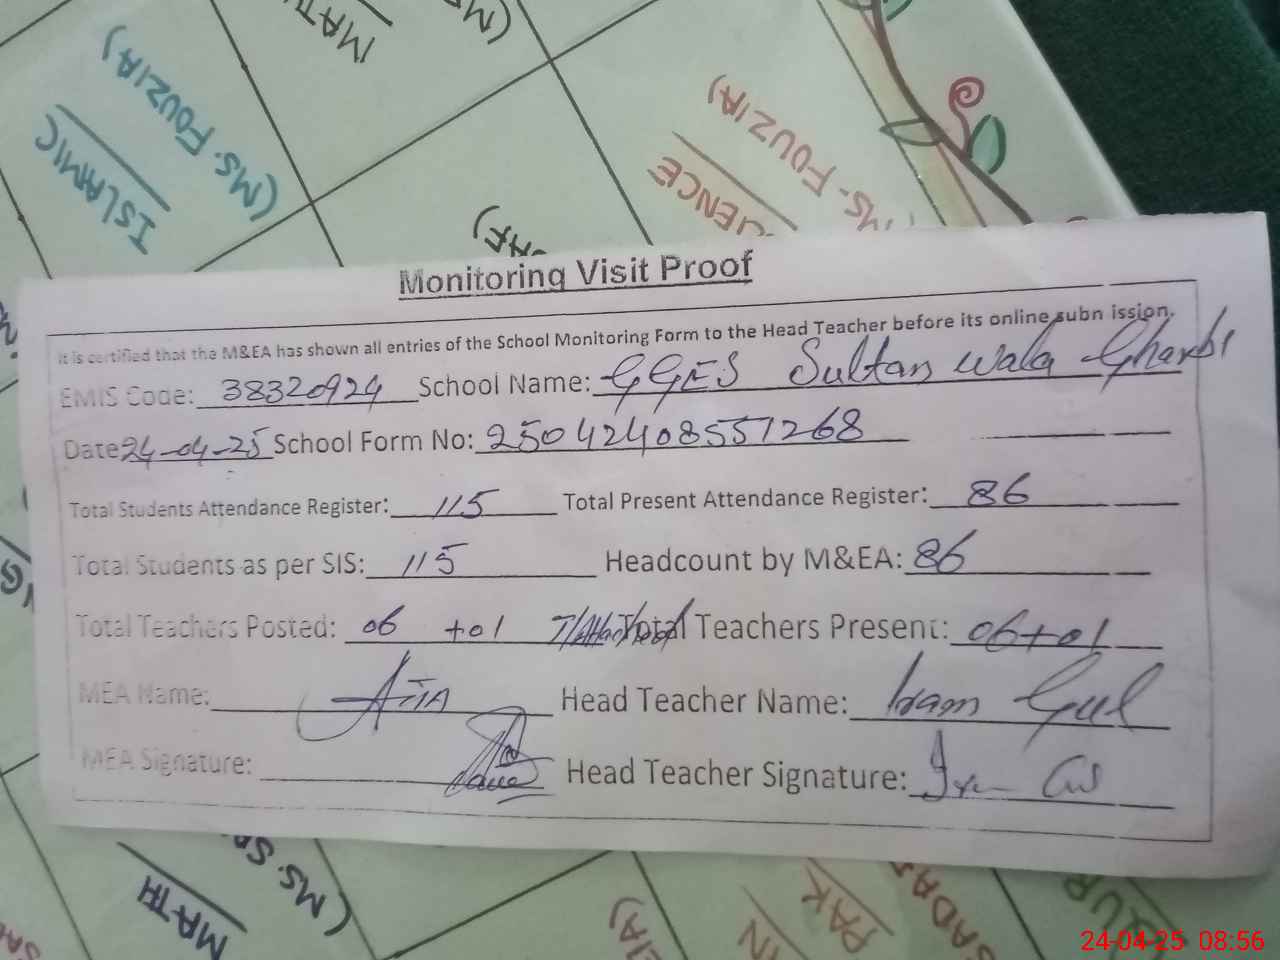 MATH
ISLAMIC
(MS. FOUZIA)
(MS. FOUZIA)
Monitoring Visit Proof
It is certified that the M&EA has shown all entries of the School Monitoring Form to the Head Teacher before its online subn ission.
EMIS Code: 38320924 School Name: GGES Sultan wala Gharbi
Date 24-04-25 School Form No: 250424085571268
Total Students Attendance Register: 115 Total Present Attendance Register: 86
Total Students as per SIS: 115 Headcount by M&EA: 86
Total Teachers Posted: 06 +01 Total Teachers Present: 06+01
MEA Name: Head Teacher Name: Iram Gul
MEA Signature: Head Teacher Signature:
MATH
PAK
24-04-25 08:56